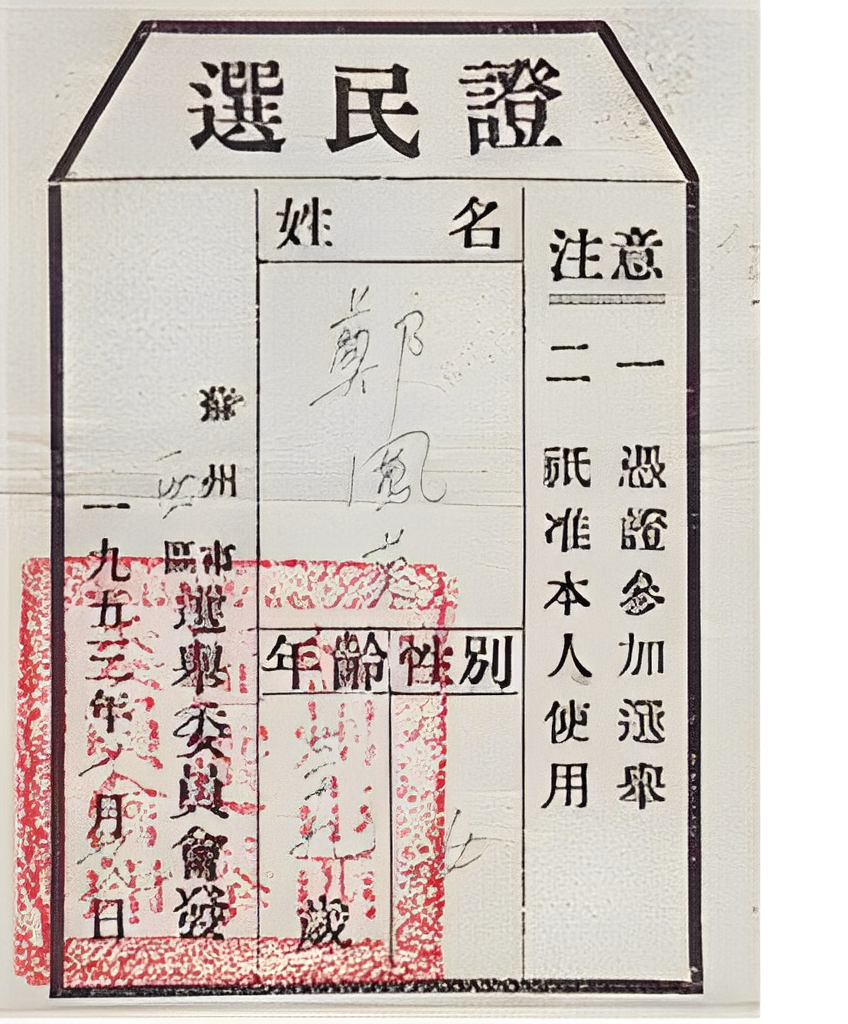 選民證
注意
一 憑證參加選舉
二 祇准本人使用
姓名
鄭鳳英
年齡
性別
歲
女
州市
區選舉委員會發
一九五三年 月 日